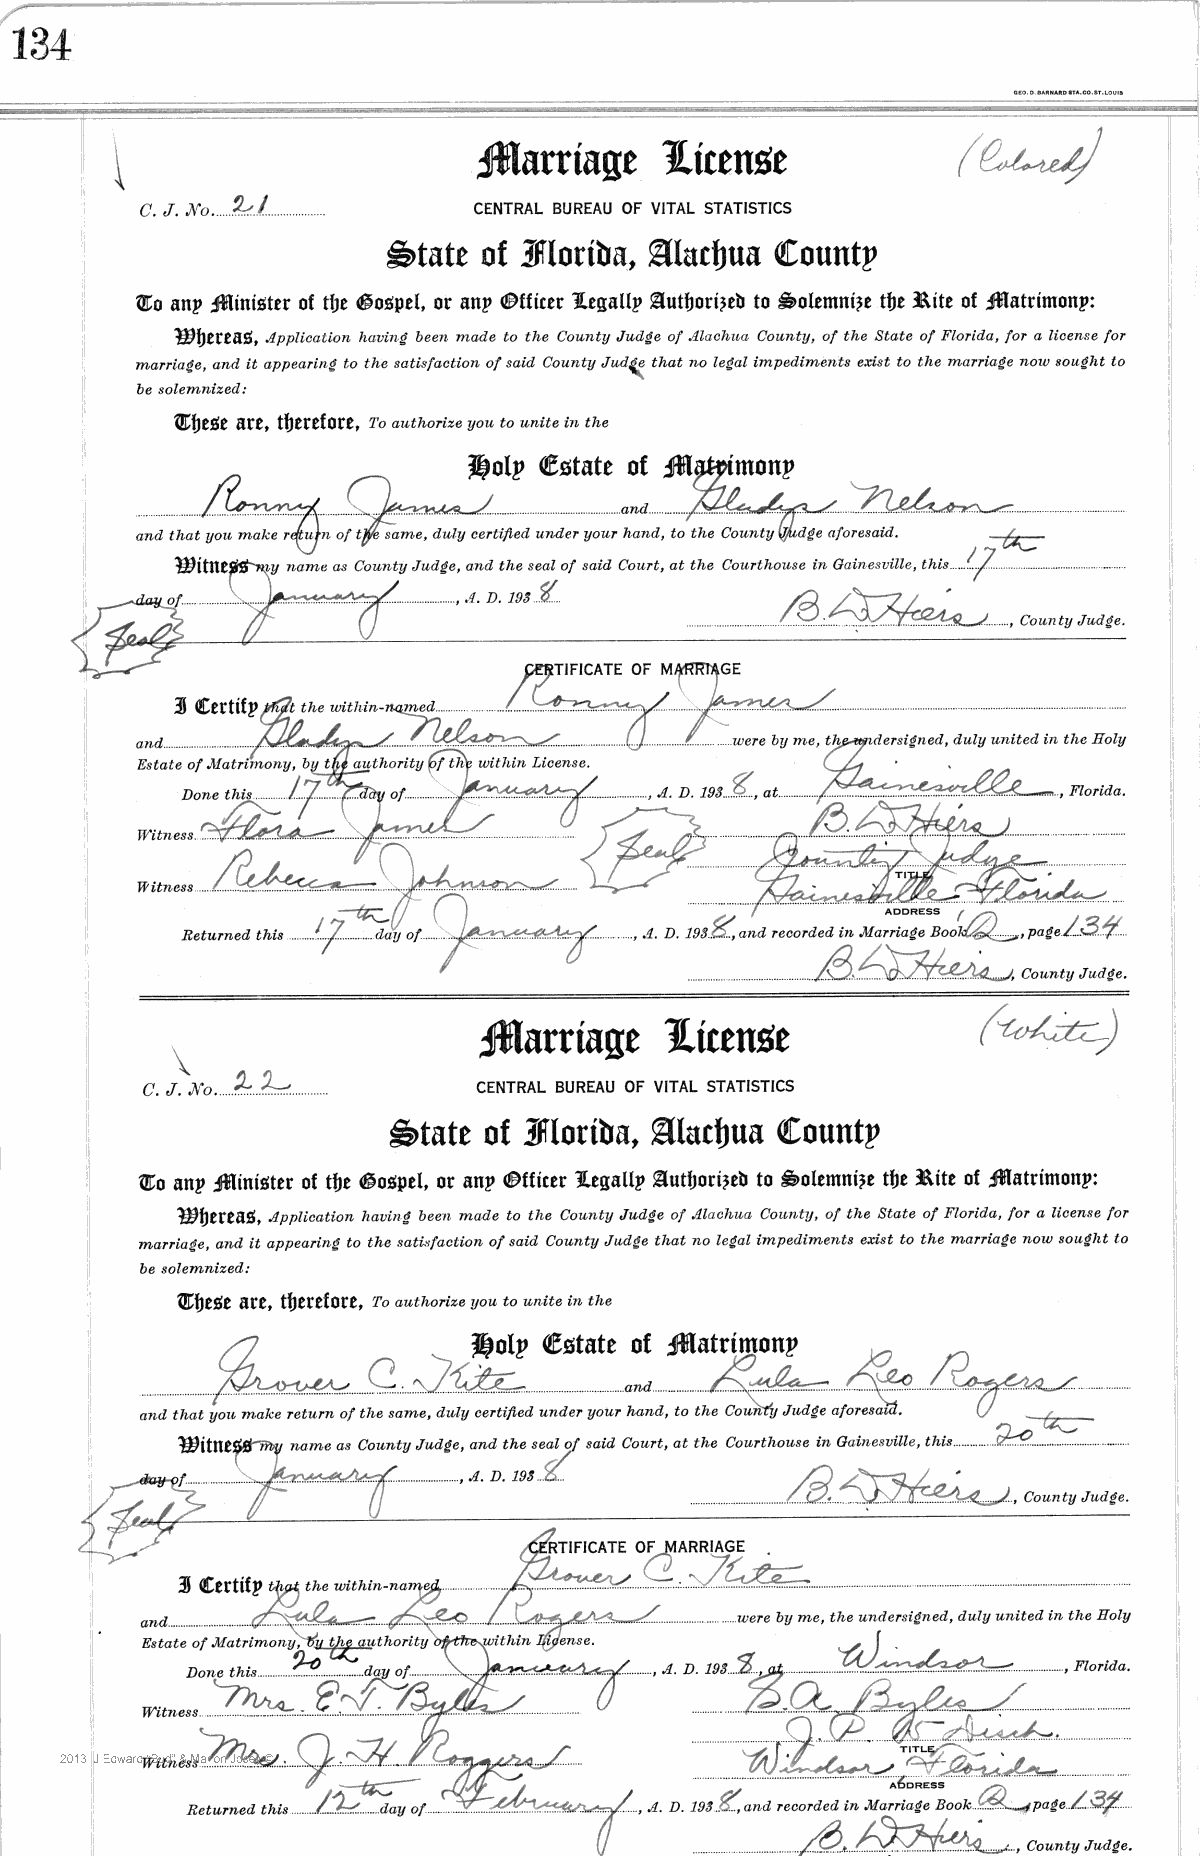 134
GEO. D. BARNARD STA. CO. ST. LOUIS
Marriage License (Colored)
C. J. No. 21 CENTRAL BUREAU OF VITAL STATISTICS
State of Florida, Alachua County
To any Minister of the Gospel, or any Officer Legally Authorized to Solemnize the Rite of Matrimony:
Whereas, Application having been made to the County Judge of Alachua County, of the State of Florida, for a license for
marriage, and it appearing to the satisfaction of said County Judge that no legal impediments exist to the marriage now sought to
be solemnized:
These are, therefore, To authorize you to unite in the
Holy Estate of Matrimony
Ronny James and Gladys Nelson
and that you make return of the same, duly certified under your hand, to the County Judge aforesaid.
Witness my name as County Judge, and the seal of said Court, at the Courthouse in Gainesville, this 17th
day of January, A. D. 1938
B. D. Hiers, County Judge.
Seal
CERTIFICATE OF MARRIAGE
I Certify that the within-named Ronny James
and Gladys Nelson were by me, the undersigned, duly united in the Holy
Estate of Matrimony, by the authority of the within License.
Done this 17th day of January, A. D. 1938, at Gainesville, Florida.
Witness Flora James B. D. Hiers
Seal County Judge
TITLE
Witness Rebecca Johnson Gainesville, Florida
ADDRESS
Returned this 17th day of January, A. D. 1938, and recorded in Marriage Book Q, page 134
B. D. Hiers, County Judge.
Marriage License (White)
C. J. No. 22 CENTRAL BUREAU OF VITAL STATISTICS
State of Florida, Alachua County
To any Minister of the Gospel, or any Officer Legally Authorized to Solemnize the Rite of Matrimony:
Whereas, Application having been made to the County Judge of Alachua County, of the State of Florida, for a license for
marriage, and it appearing to the satisfaction of said County Judge that no legal impediments exist to the marriage now sought to
be solemnized:
These are, therefore, To authorize you to unite in the
Holy Estate of Matrimony
Grover C. Kite and Lula Leo Rogers
and that you make return of the same, duly certified under your hand, to the County Judge aforesaid.
Witness my name as County Judge, and the seal of said Court, at the Courthouse in Gainesville, this 20th
day of January, A. D. 1938
B. D. Hiers, County Judge.
Seal
CERTIFICATE OF MARRIAGE
I Certify that the within-named Grover C. Kite
and Lula Leo Rogers were by me, the undersigned, duly united in the Holy
Estate of Matrimony, by the authority of the within License.
Done this 20th day of January, A. D. 1938, at Windsor, Florida.
Witness Mrs. E. T. Byles S. A. Byles
J. P. 15 Disch.
TITLE
2013 J Edward
Witness Mrs. J. H. Roggers Windsor, Florida
ADDRESS
Returned this 12th day of February, A. D. 1938, and recorded in Marriage Book Q, page 134
B. D. Hiers, County Judge.